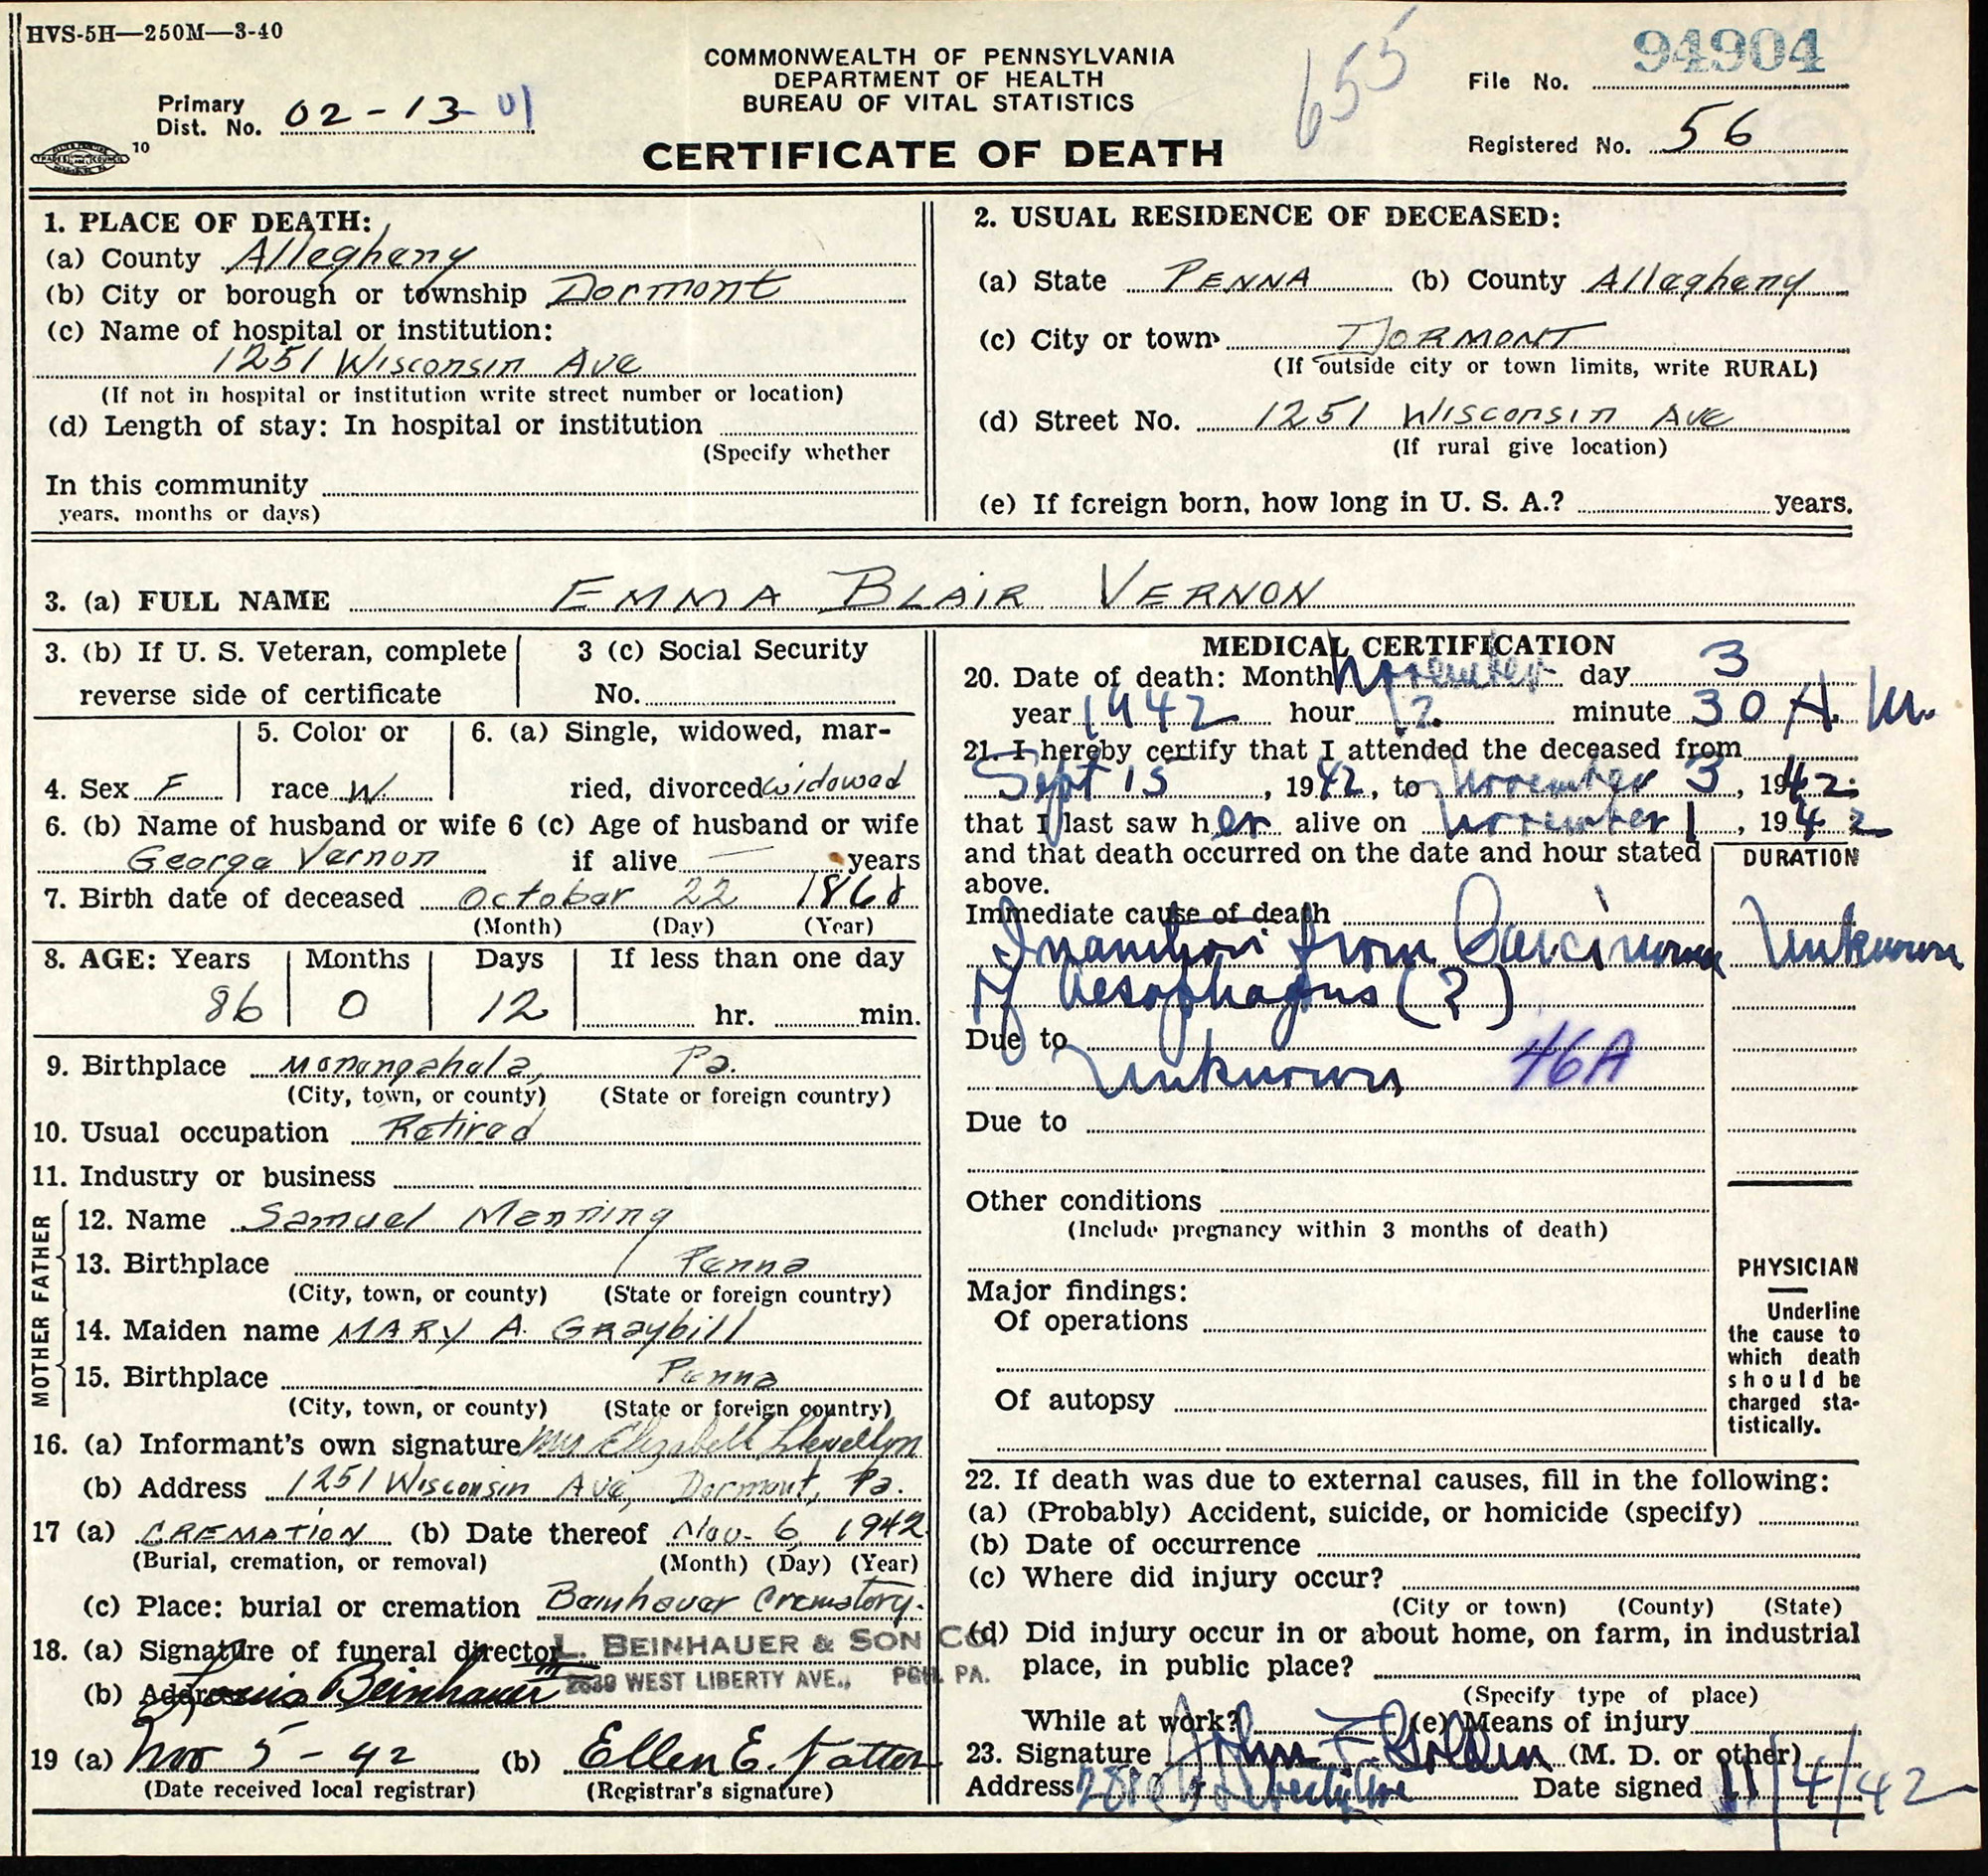 HVS-5H—250M—3-40
COMMONWEALTH OF PENNSYLVANIA
DEPARTMENT OF HEALTH
BUREAU OF VITAL STATISTICS
CERTIFICATE OF DEATH
655
94904
File No.
Primary
Dist. No. 02-13-01
10
Registered No. 56
1. PLACE OF DEATH:
(a) County Allegheny
(b) City or borough or township Dormont
(c) Name of hospital or institution:
1251 Wisconsin Ave
(If not in hospital or institution write street number or location)
(d) Length of stay: In hospital or institution
(Specify whether
In this community
years, months or days)
2. USUAL RESIDENCE OF DECEASED:
(a) State PENNA (b) County Allegheny
(c) City or town DORMONT
(If outside city or town limits, write RURAL)
(d) Street No. 1251 Wisconsin Ave
(If rural give location)
(e) If foreign born, how long in U. S. A.? years.
3. (a) FULL NAME EMMA BLAIR VERNON
3. (b) If U. S. Veteran, complete
reverse side of certificate
3 (c) Social Security
No.
4. Sex F
5. Color or
race W
6. (a) Single, widowed, mar-
ried, divorced widowed
6. (b) Name of husband or wife
George Vernon
6 (c) Age of husband or wife
if alive — years
7. Birth date of deceased October 22
(Month) (Day) (Year)
8. AGE: Years Months Days If less than one day
86 0 12 hr. min.
9. Birthplace Monongahela, Pa.
(City, town, or county) (State or foreign country)
10. Usual occupation Retired
11. Industry or business
FATHER
12. Name Samuel Menning
13. Birthplace Penna
(City, town, or county) (State or foreign country)
MOTHER
14. Maiden name MARY A. Graybill
15. Birthplace Penna
(City, town, or county) (State or foreign country)
16. (a) Informant's own signature Mrs Elizabeth Llewellyn
(b) Address 1251 Wisconsin Ave, Dormont, Pa.
17 (a) CREMATION (b) Date thereof Nov. 6, 1942
(Burial, cremation, or removal) (Month) (Day) (Year)
(c) Place: burial or cremation Beinhauer Crematory.
18. (a) Signature of funeral director L. BEINHAUER & SON CO.
2630 WEST LIBERTY AVE., PGH. PA.
(b) Address Louis Beinhauer
19 (a) Nov 5-42 (b) Ellen E.
(Date received local registrar) (Registrar's signature)
MEDICAL CERTIFICATION
20. Date of death: Month November day 3
year 1942 hour 12 minute 30 A. M.
21. I hereby certify that I attended the deceased from
Sept 15, 1942, to November 3, 1942
that I last saw her alive on November 1, 1942
and that death occurred on the date and hour stated
above.
DURATION
Immediate cause of death
Inanition from Carcinoma Unknown
of Aesophagus (?)
Due to
Unknown 46A
Due to
Other conditions
(Include pregnancy within 3 months of death)
Major findings:
Of operations
Of autopsy
PHYSICIAN
Underline
the cause to
which death
should be
charged sta-
tistically.
22. If death was due to external causes, fill in the following:
(a) (Probably) Accident, suicide, or homicide (specify)
(b) Date of occurrence
(c) Where did injury occur?
(City or town) (County) (State)
(d) Did injury occur in or about home, on farm, in industrial
place, in public place?
(Specify type of place)
While at work? (e) Means of injury
23. Signature John F. Golden (M. D. or other)
Address Date signed 11/4/42